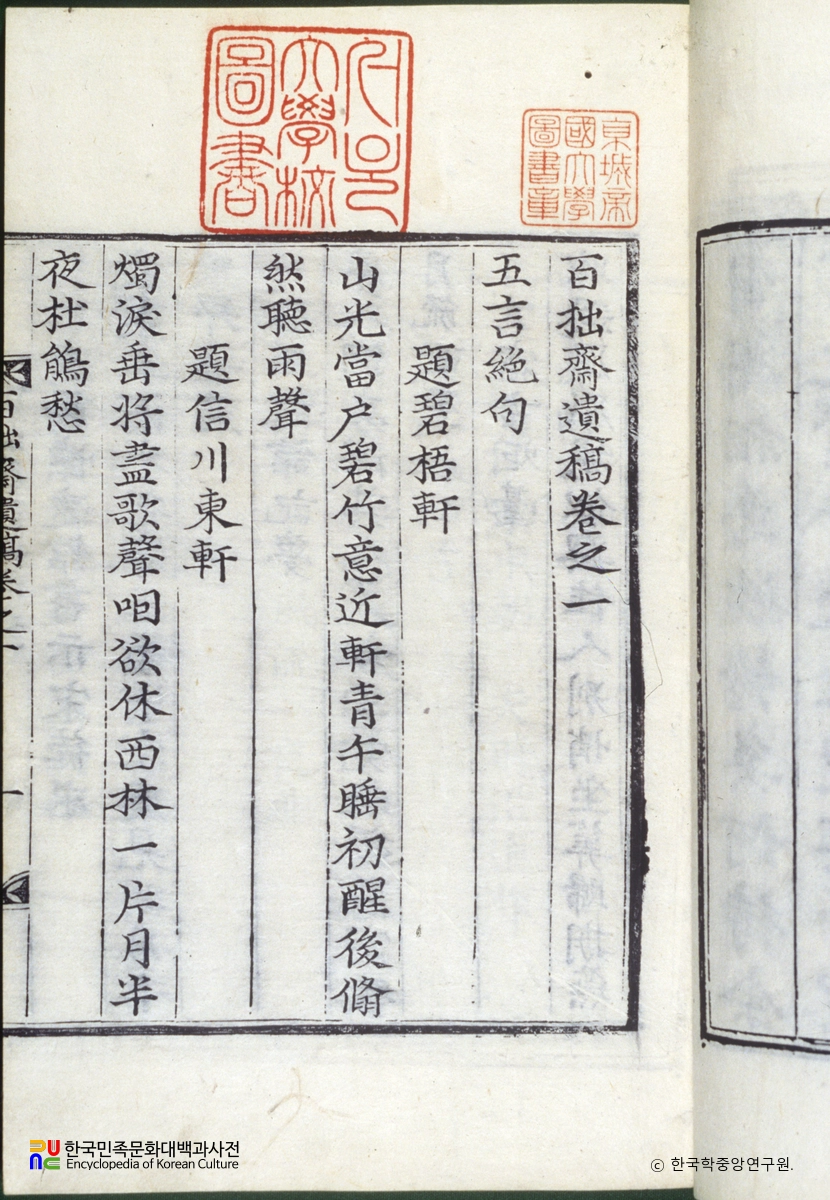 서울
大學校
圖書
京城帝
國大學
圖書章
百拙齋遺稿卷之一
五言絶句
題碧梧軒
山光當户碧竹意近軒青午睡初醒後翛
然聽雨聲
題信川東軒
燭淚垂將盡歌聲咽欲休西林一片月半
夜杜鵑愁
百拙齋遺稿卷之一
一
한국민족문화대백과사전
Encyclopedia of Korean Culture
© 한국학중앙연구원.